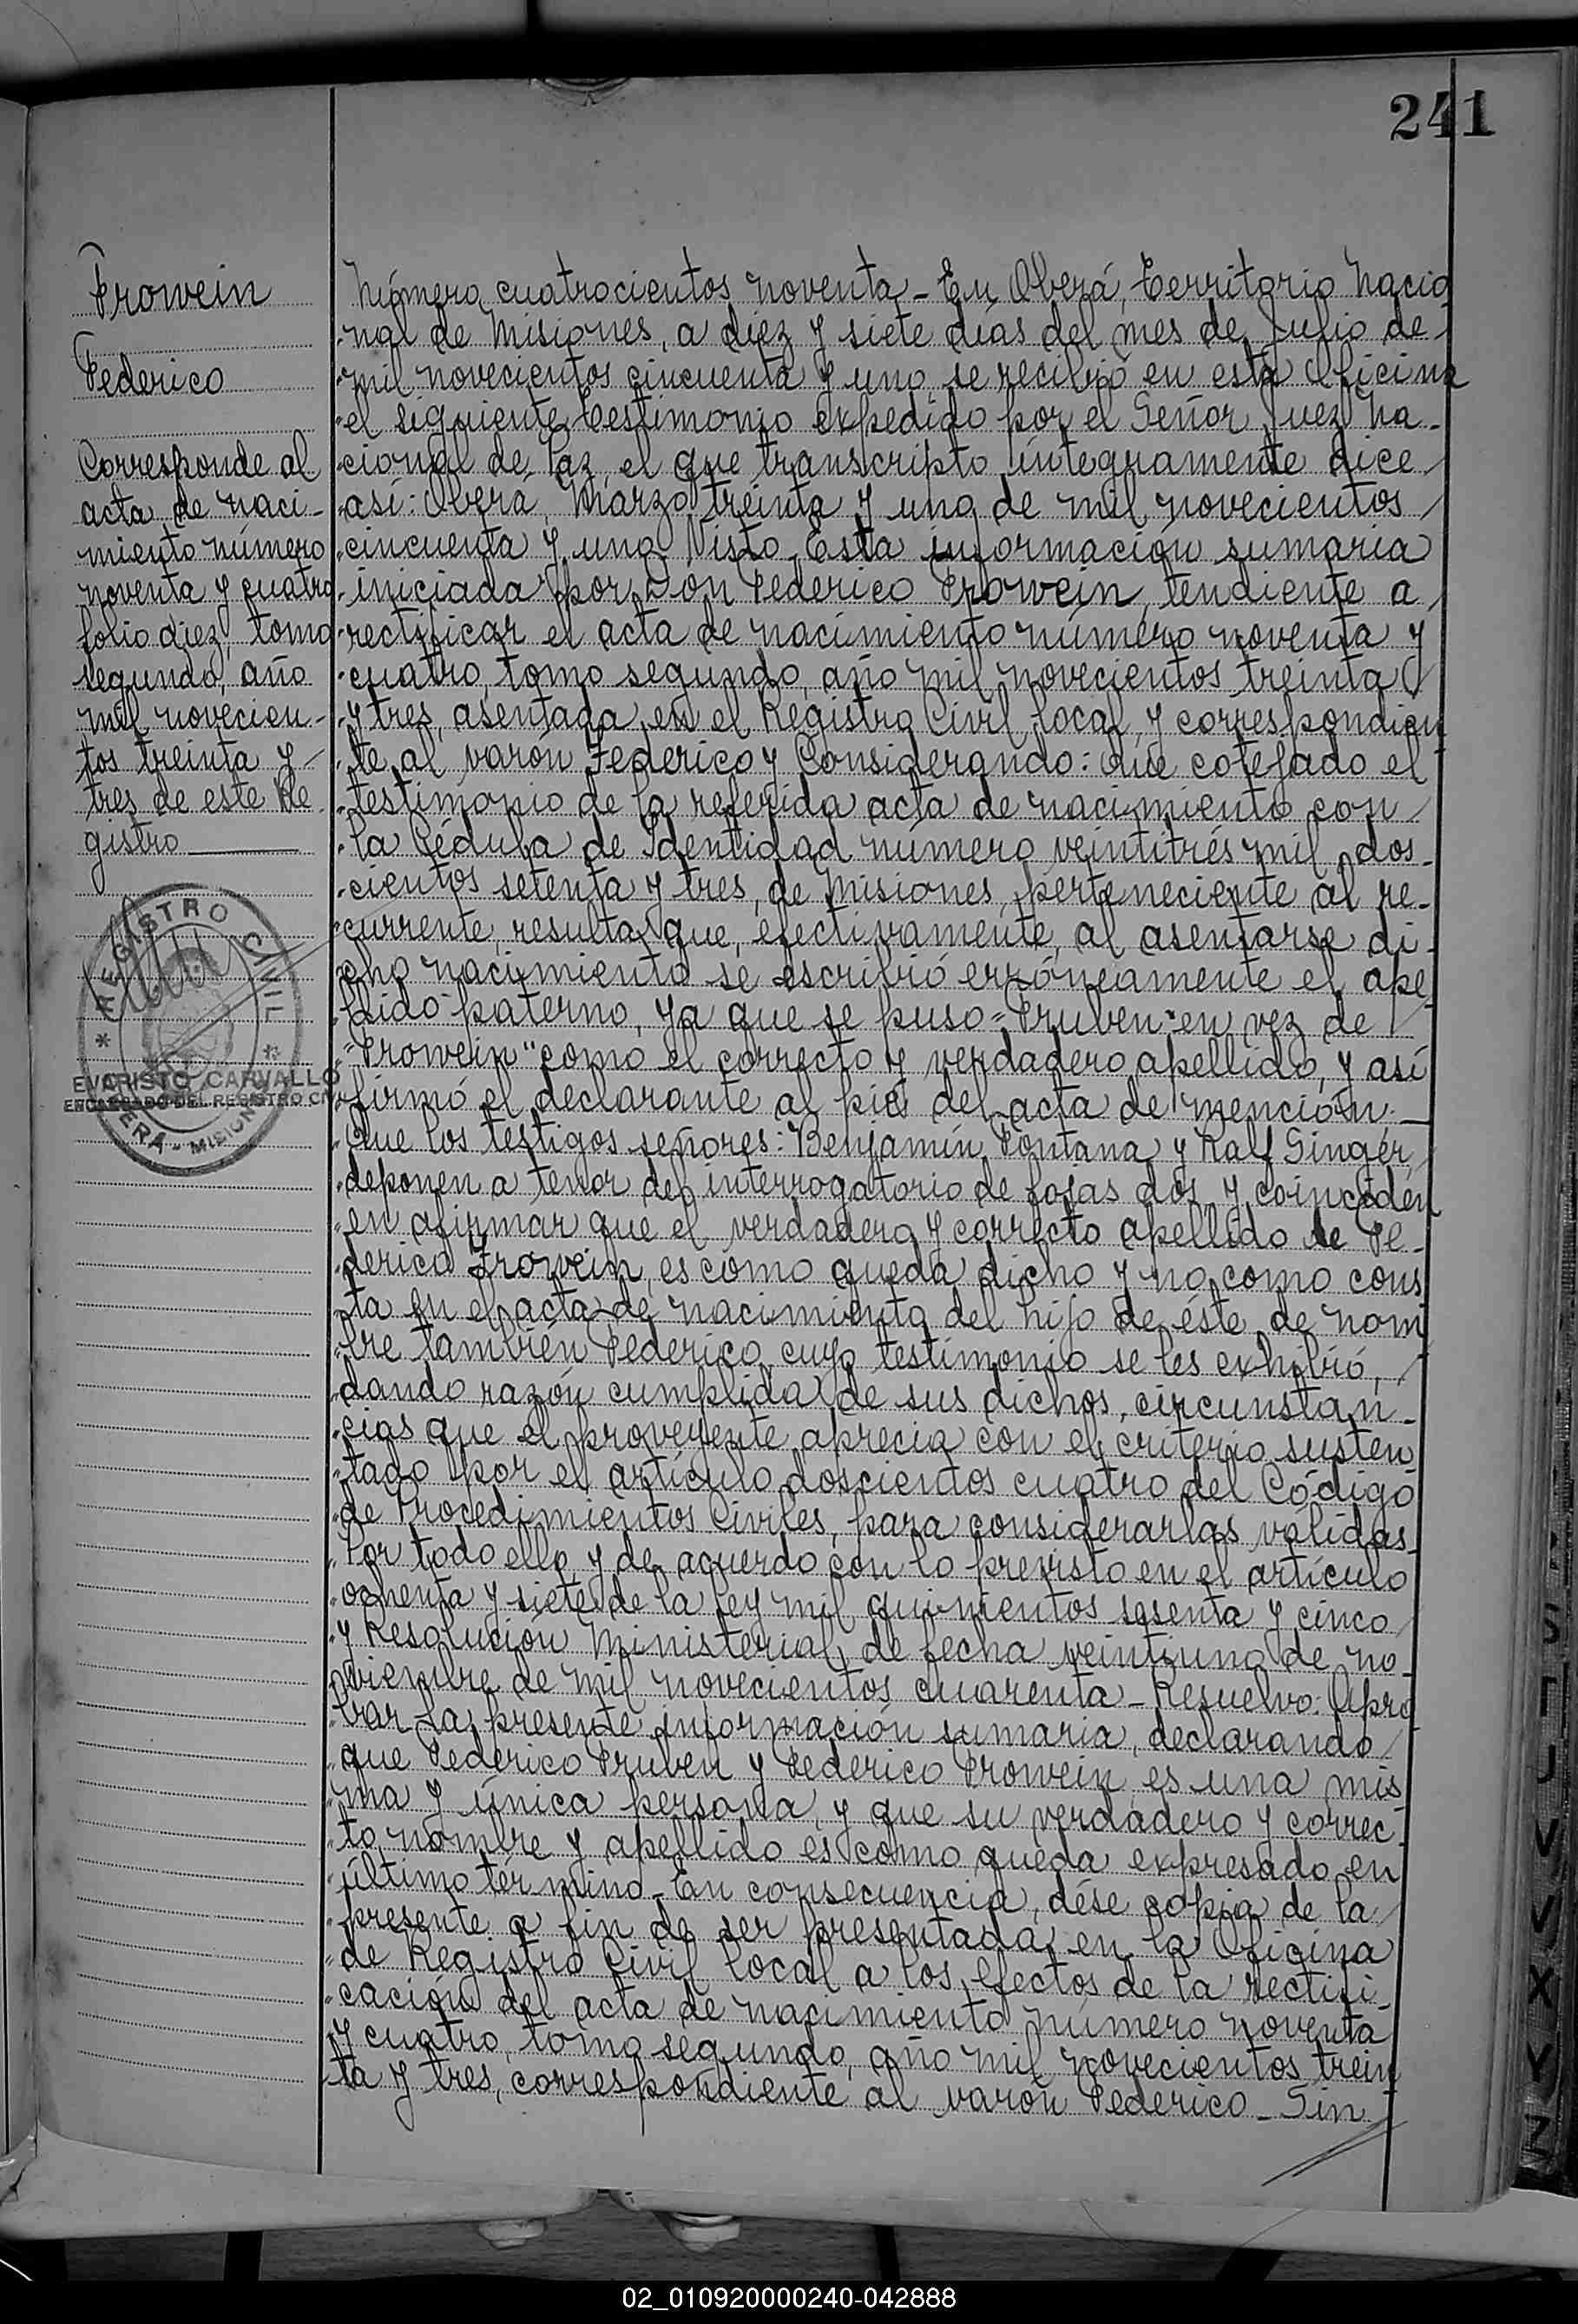 241
Frowein
Federico
Corresponde al
acta de naci-
miento número
noventa y cuatro
folio diez, tomo
segundo, año
mil novecien-
tos treinta y
tres de este Re
gistro
REGISTRO CIVIL
OBERÁ - MISIONES
EVARISTO CARVALLO
ENCARGADO DEL REGISTRO CIVIL
Número cuatrocientos noventa - En Oberá, Territorio Nacio
nal de Misiones, a diez y siete días del mes de Julio de
mil novecientos cincuenta y uno, se recibió en esta Oficina
el siguiente testimonio expedido por el Señor Juez Na-
cional de Paz, el que transcripto íntegramente dice
así: Oberá, Marzo treinta y uno de mil novecientos
cincuenta y uno. Visto: Esta información sumaria
iniciada por Don Federico Frowein, tendiente a
rectificar el acta de nacimiento número noventa y
cuatro, tomo segundo, año mil novecientos treinta
y tres, asentada en el Registro Civil local, y correspondien
te al varón Federico y Considerando: Que cotejado el
testimonio de la referida acta de nacimiento con
la Cédula de Identidad número veintitrés mil dos-
cientos setenta y tres, de Misiones, perteneciente al re-
currente, resulta que, efectivamente, al asentarse di-
cho nacimiento se escribió erróneamente el ape-
llido paterno, ya que se puso "Fruven" en vez de
"Frowein" como el correcto y verdadero apellido, y así
firmó el declarante al pie del acta de mención.-
Que los testigos señores: Benjamín Fontana y Ralf Singer,
deponen a tenor del interrogatorio de fojas dos y coinciden
en afirmar que el verdadero y correcto apellido de Fe-
derico Frowein, es como queda dicho y no como cons
ta en el acta de nacimiento del hijo de éste, de nom
bre también Federico, cuyo testimonio se les exhibió,
dando razón cumplida de sus dichos, circunstan-
cias que el proveyente aprecia con el criterio susten
tado por el artículo doscientos cuatro del Código
de Procedimientos Civiles, para considerarlas válidas.
Por todo ello y de acuerdo con lo previsto en el artículo
ochenta y siete de la ley mil quinientos sesenta y cinco
y Resolución Ministerial de fecha veintiuno de no-
viembre de mil novecientos cuarenta - Resuelvo: Apro
bar la presente información sumaria, declarando
que Federico Fruven y Federico Frowein, es una mis
ma y única persona, y que su verdadero y correc-
to nombre y apellido es como queda expresado en
último término - En consecuencia, dése copia de la
presente a fin de ser presentada en la Oficina
de Registro Civil local a los efectos de la rectifi-
cación del acta de nacimiento número noventa
y cuatro, tomo segundo, año mil novecientos trein
ta y tres, correspondiente al varón Federico - Sin
S
T
U
V
X
Y
Z
02_010920000240-042888